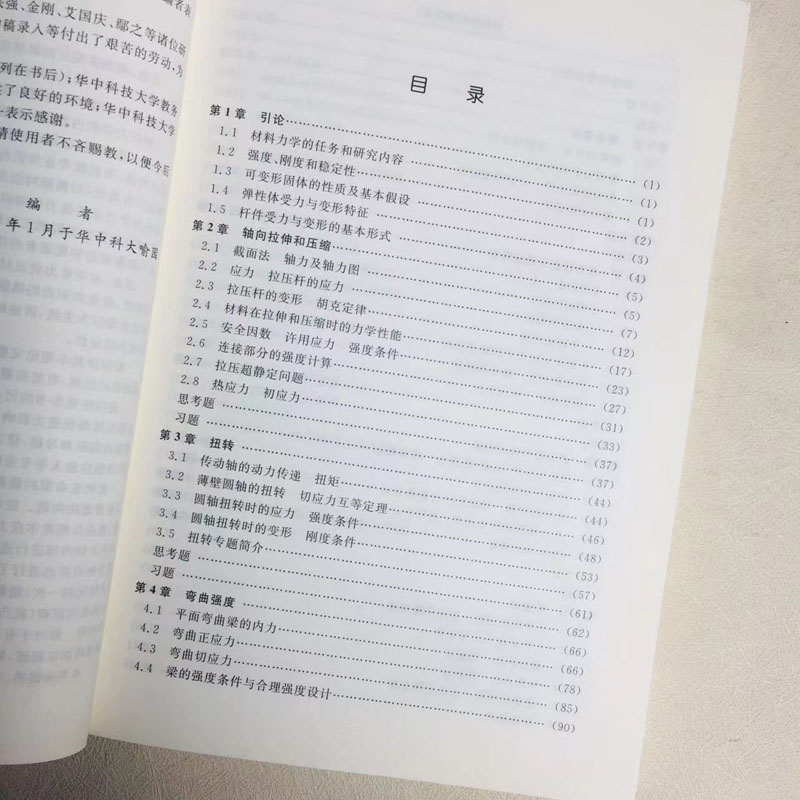 强、金刚、艾国庆、鄢之等诸位研
稿录入等付出了艰苦的劳动,为
列在书后);华中科技大学教务
了良好的环境;华中科技大学
表示感谢。
请使用者不吝赐教,以便今后
编 者
年1月于华中科大喻园
目 录
第1章 引论……(1)
1.1 材料力学的任务和研究内容……(1)
1.2 强度、刚度和稳定性……(1)
1.3 可变形固体的性质及基本假设……(2)
1.4 弹性体受力与变形特征……(3)
1.5 杆件受力与变形的基本形式……(4)
第2章 轴向拉伸和压缩……(5)
2.1 截面法 轴力及轴力图……(5)
2.2 应力 拉压杆的应力……(7)
2.3 拉压杆的变形 胡克定律……(12)
2.4 材料在拉伸和压缩时的力学性能……(17)
2.5 安全因数 许用应力 强度条件……(23)
2.6 连接部分的强度计算……(27)
2.7 拉压超静定问题……(31)
2.8 热应力 初应力……(33)
思考题……(37)
习题……(37)
第3章 扭转……(44)
3.1 传动轴的动力传递 扭矩……(44)
3.2 薄壁圆轴的扭转 切应力互等定理……(46)
3.3 圆轴扭转时的应力 强度条件……(48)
3.4 圆轴扭转时的变形 刚度条件……(53)
3.5 扭转专题简介……(57)
思考题……(61)
习题……(62)
第4章 弯曲强度……(66)
4.1 平面弯曲梁的内力……(66)
4.2 弯曲正应力……(78)
4.3 弯曲切应力……(85)
4.4 梁的强度条件与合理强度设计……(90)